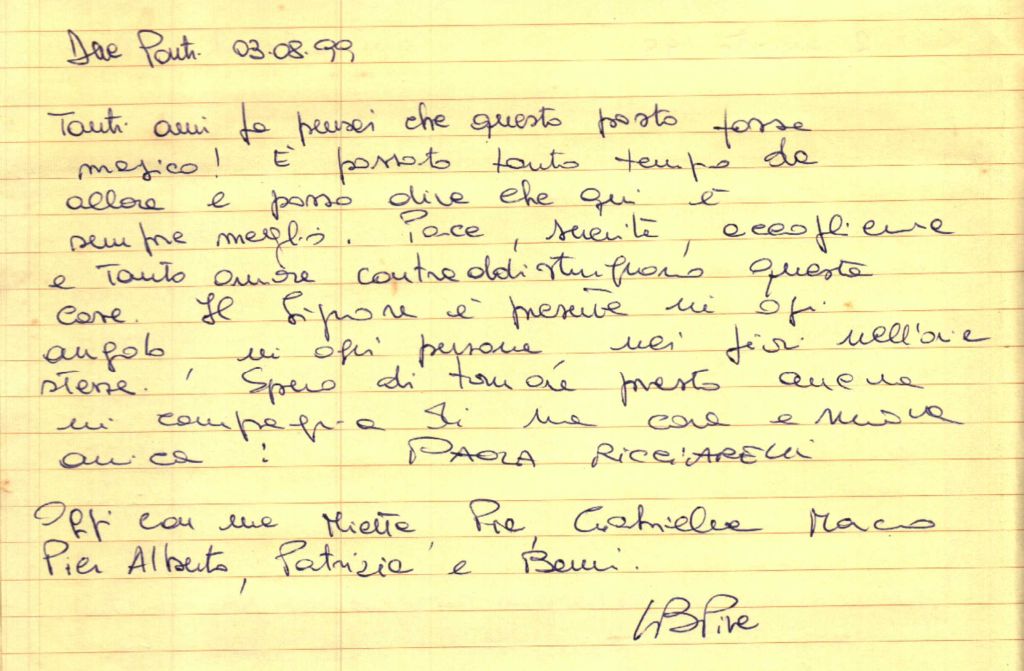 Due Ponti 03.08.99
Tanti anni fa pensai che questo posto fosse
magico! È passato tanto tempo da
allora e posso dire che qui è
sempre meglio. Pace, serenità, accoglienza
e tanto amore contraddistinguono questa
casa. Il Signore è presente in ogni
angolo, in ogni persona, nei fiori nell'aria
stessa. Spero di tornare presto ancora
in compagnia di una cara e nuova
amica! PAOLA RICCIARELLI
Oggi con me Mietta, Pia, Gabriella
Pier Alberto, Patrizia e Benni.